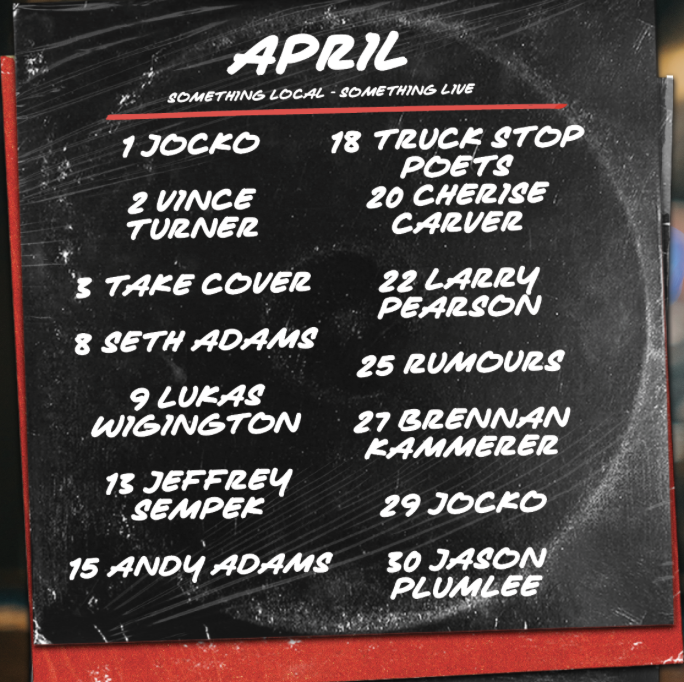 APRIL
SOMETHING LOCAL - SOMETHING LIVE
1 JOCKO
2 VINCE
TURNER
3 TAKE COVER
8 SETH ADAMS
9 LUKAS
WIGINGTON
13 JEFFREY
SEMPEK
15 ANDY ADAMS
18 TRUCK STOP
POETS
20 CHERISE
CARVER
22 LARRY
PEARSON
25 RUMOURS
27 BRENNAN
KAMMERER
29 JOCKO
30 JASON
PLUMLEE